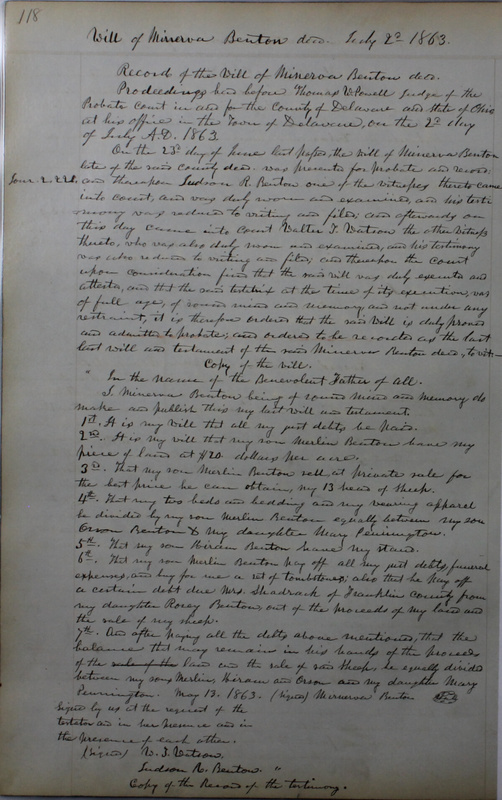 118
Will of Minerva Benton decd. July 2d 1863.
Record of the Will of Minerva Benton decd.
Proceedings had before Thomas W. Powell Judge of the
Probate Court in and for the County of Delaware and State of Ohio
at his office in the Town of Delaware, on the 2d day
of July A.D. 1863.
On the 23d day of June last past, the Will of Minerva Benton
late of the said County decd. was presented for probate and record;
and thereupon Judson R. Benton one of the witnesses thereto came
into Court, and was duly sworn and examined, and his testi
mony was reduced to writing and filed; and afterwards on
this day came into Court Walter T. Watson the other witness
thereto, who was also duly sworn and examined, and his testimony
was also reduced to writing and filed; and thereupon the Court
upon consideration find that the said will was duly executed and
attested, and that the said testatrix at the time of its execution, was
of full age, of sound mind and memory and not under any
restraint, it is therefore ordered that the said Will is duly proved
and admitted to probate; and ordered to be recorded as the last
last will and testament of the said Minerva Benton decd., to wit:—
Copy of the will.
" In the name of the Benevolent Father of all.
I Minerva Benton being of sound mind and memory do
make and publish this my last will and testament.
1st. It is my Will that all my just debts be paid.
2nd. It is my will that my son Merlin Benton have my
piece of land at $20. dollars per acre.
3d. That my son Merlin Benton sell at private sale for
the best price he can obtain, my 13 head of sheep.
4th. That my two beds and bedding and my wearing apparel
be divided by my son Merlin Benton equally between my son
Orson Benton & my daughter Mary Pennington.
5th. That my son Hiram Benton have my stand.
6th. That my son Merlin Benton pay off all my just debts, funeral
expenses, and buy for me a set of tombstones; also that he pay off
a certain debt due Mrs. Shadrack of Franklin County from
my daughter Roxey Benton, out of the proceeds of my land and
the sale of my sheep.
7th. And after paying all the debts above mentioned, that the
balance that may remain in his hands of the proceeds
of the sale of the land and the sale of said sheep, be equally divided
between my sons Merlin, Hiram and Orson and my daughter Mary
Pennington. May 13. 1863. (Signed) Minerva Benton
Signed by us at the request of the
testator and in her presence and in
the presence of each other.
(Signed) W. T. Watson.
Judson R. Benton. "
Copy of the Record of the testimony.